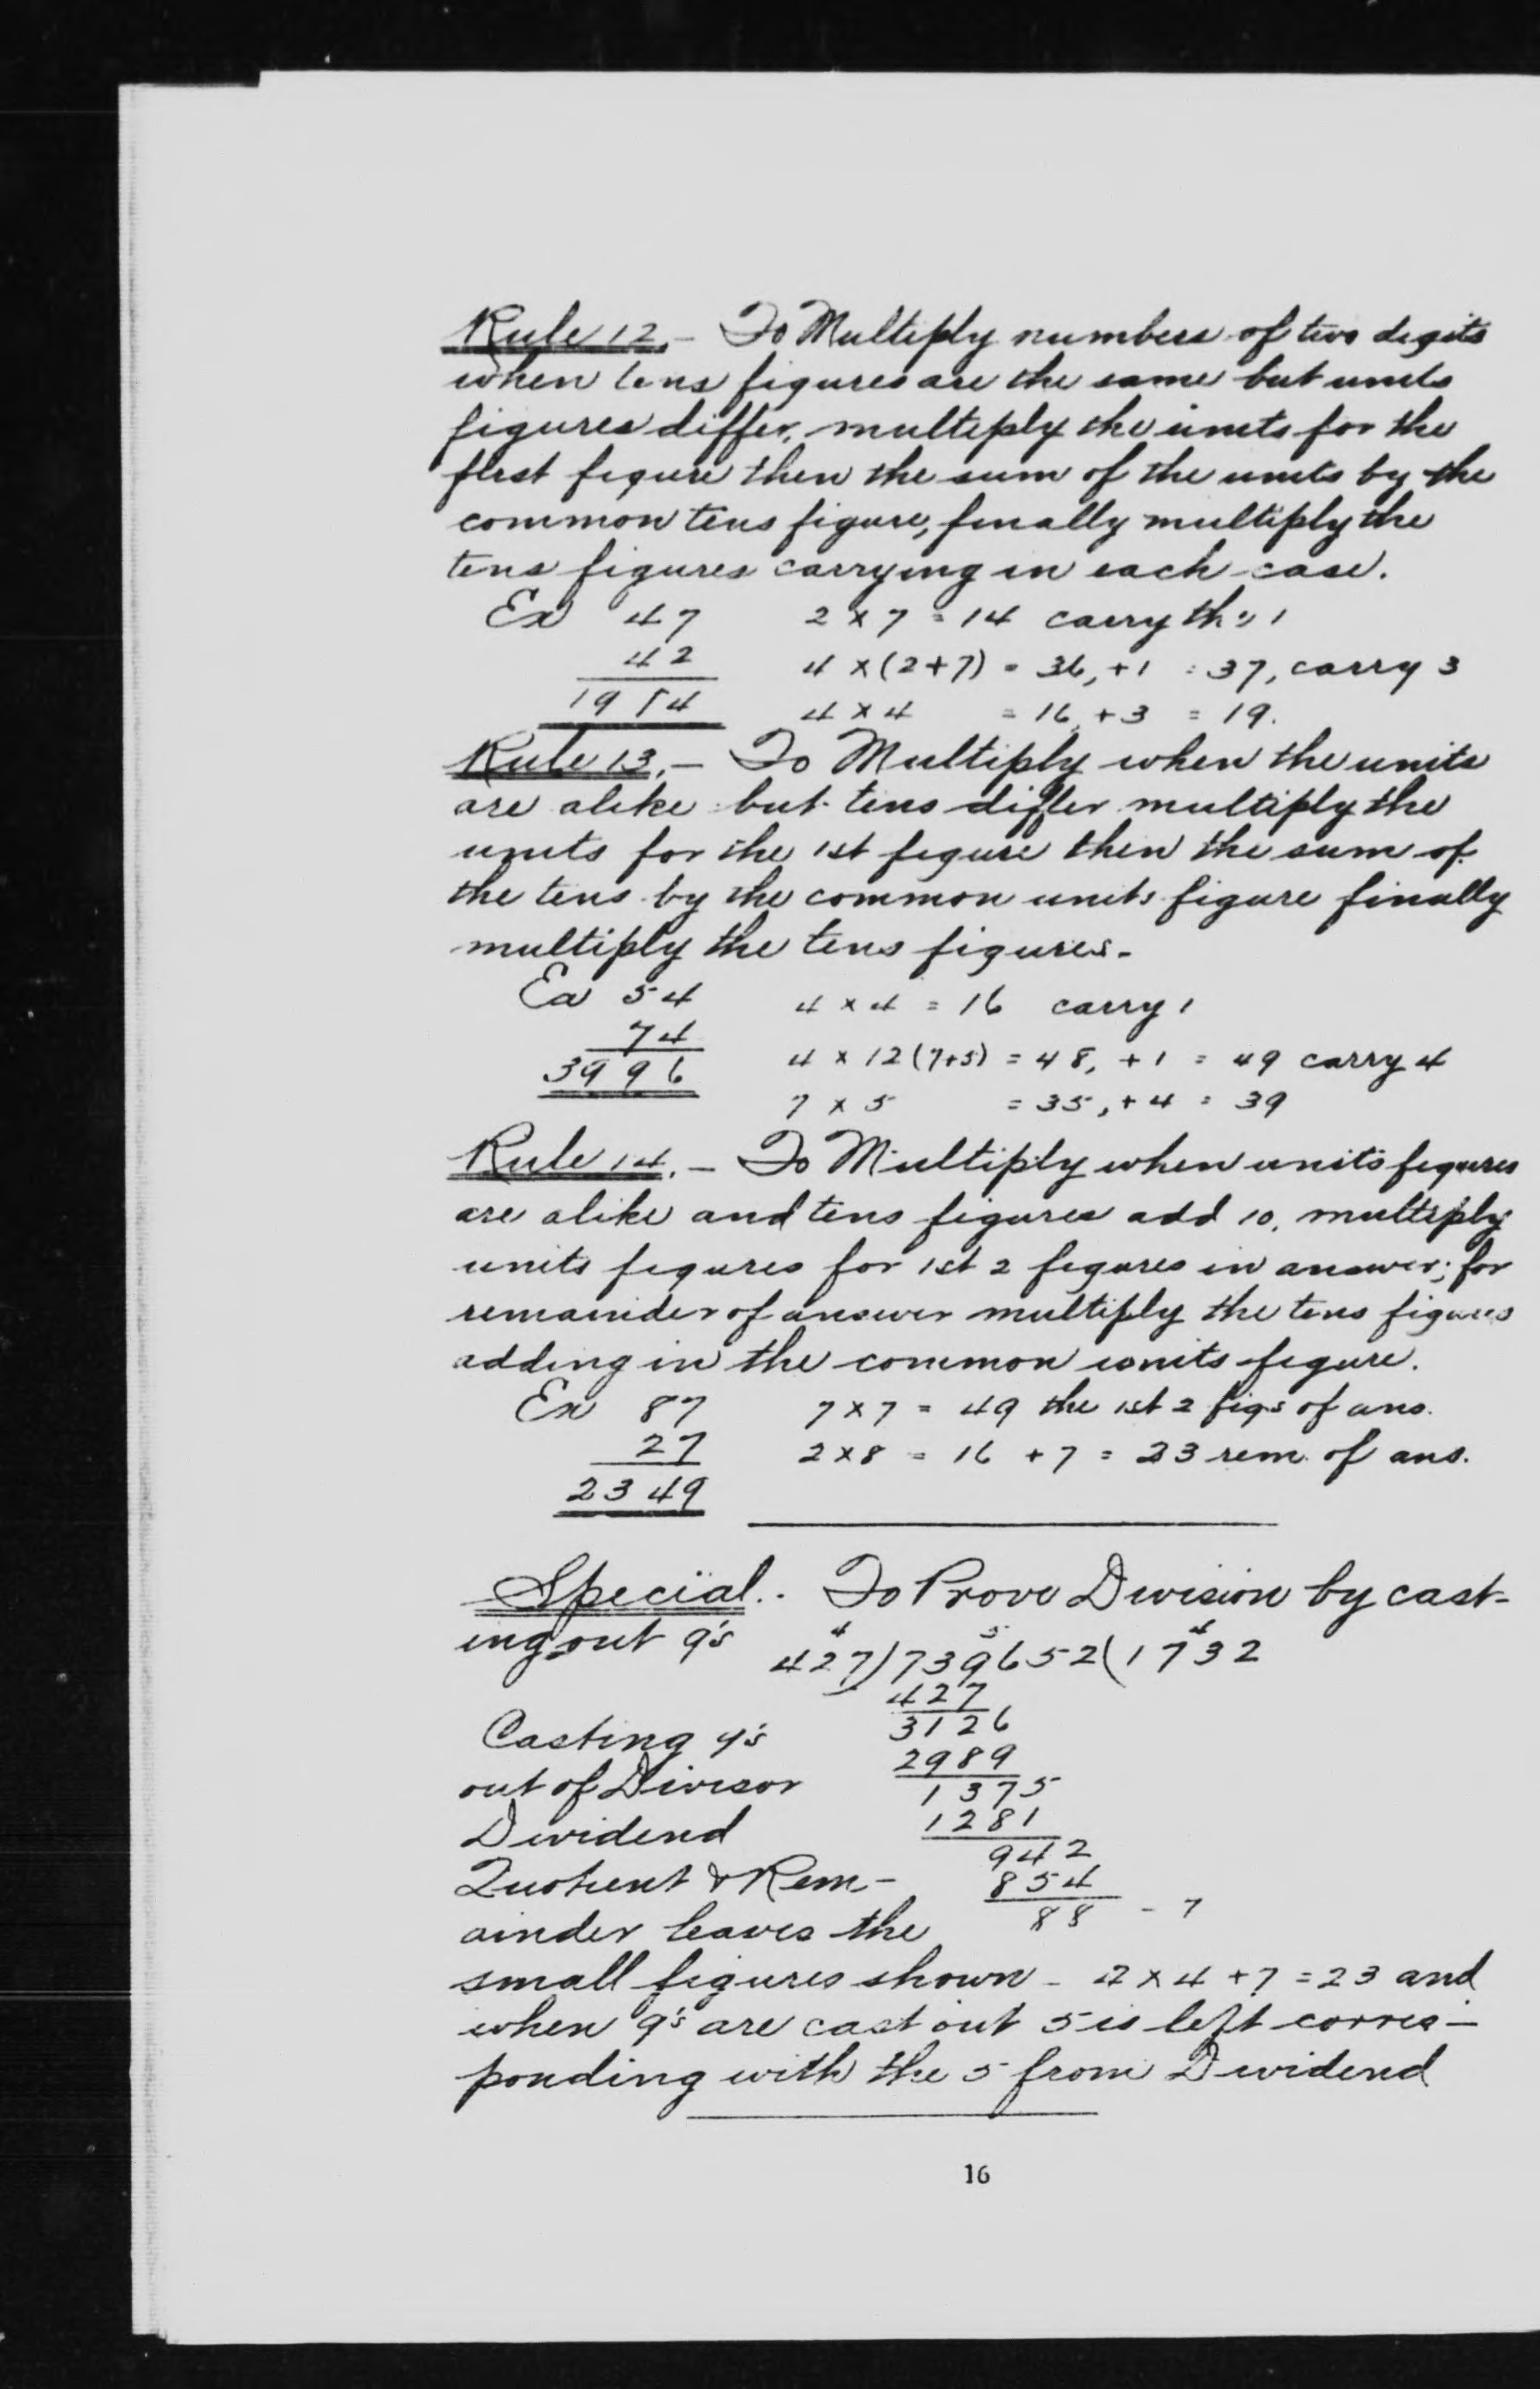 Rule 12. - To Multiply numbers of two digits
when tens figures are the same but units
figures differ, multiply the units for the
first figure then the sum of the units by the
common tens figure, finally multiply the
tens figures carrying in each case.
Ex 47 2 x 7 = 14 carry the 1
42 4 x (2+7) = 36, +1 = 37, carry 3
1974 4 x 4 = 16, +3 = 19.
Rule 13. - To Multiply when the units
are alike but tens differ multiply the
units for the 1st figure then the sum of
the tens by the common units figure finally
multiply the tens figures.
Ex 54 4 x 4 = 16 carry 1
74 4 x 12 (7+5) = 48, +1 = 49 carry 4
3996 7 x 5 = 35, +4 = 39
Rule 14. - To Multiply when units figures
are alike and tens figures add 10, multiply
units figures for 1st 2 figures in answer; for
remainder of answer multiply the tens figures
adding in the common units figure.
Ex 87 7 x 7 = 49 the 1st 2 figs of ans.
27 2 x 8 = 16 + 7 = 23 rem. of ans.
2349
Special. - To Prove Division by cast-
ing out 9's
4 5 4
427)739652(1732
427
3126
Casting 9's
2989
out of Divisor
1375
1281
Dividend
942
Quotient & Rem-
854
88 - 7
ainder leaves the
small figures shown - 4 x 4 + 7 = 23 and
when 9's are cast out 5 is left corres-
ponding with the 5 from Dividend
16